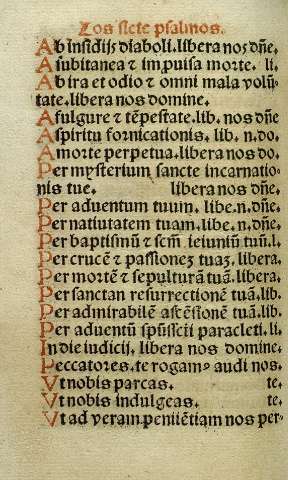 Los siete psalmos.
Ab insidijs diaboli.libera nos dñe.
A subitanea ⁊ improuisa morte. li.
Ab ira et odio ⁊ omni mala volũ-
tate.libera nos domine.
A fulgure ⁊ tẽpestate.lib. nos dñe
A spiritu fornicationis. lib. n.do.
A morte perpetua.libera nos do.
Per mysterium sancte incarnatio-
nis tue. libera nos dñe.
Per aduentum tuum. libe.n.dñe.
Per natiuitatem tuam.libe.n.dñe.
Per baptismũ ⁊ scm̃ ieiuniũ tuũ.l.
Per crucẽ ⁊ passionez tuaz.libera.
Per mortẽ ⁊ sepulturã tuã.libera.
Per sanctan resurrectionẽ tuã.lib.
Per admirabilẽ ascẽsionẽ tuã.lib.
Per aduentũ spũssctĩ paracleti.li.
In die iudicij. libera nos domine.
Peccatores.te rogamꝰ audi nos.
Ut nobis parcas. te.
Ut nobis indulgeas. te.
Ut ad veram penitẽtiam nos per-